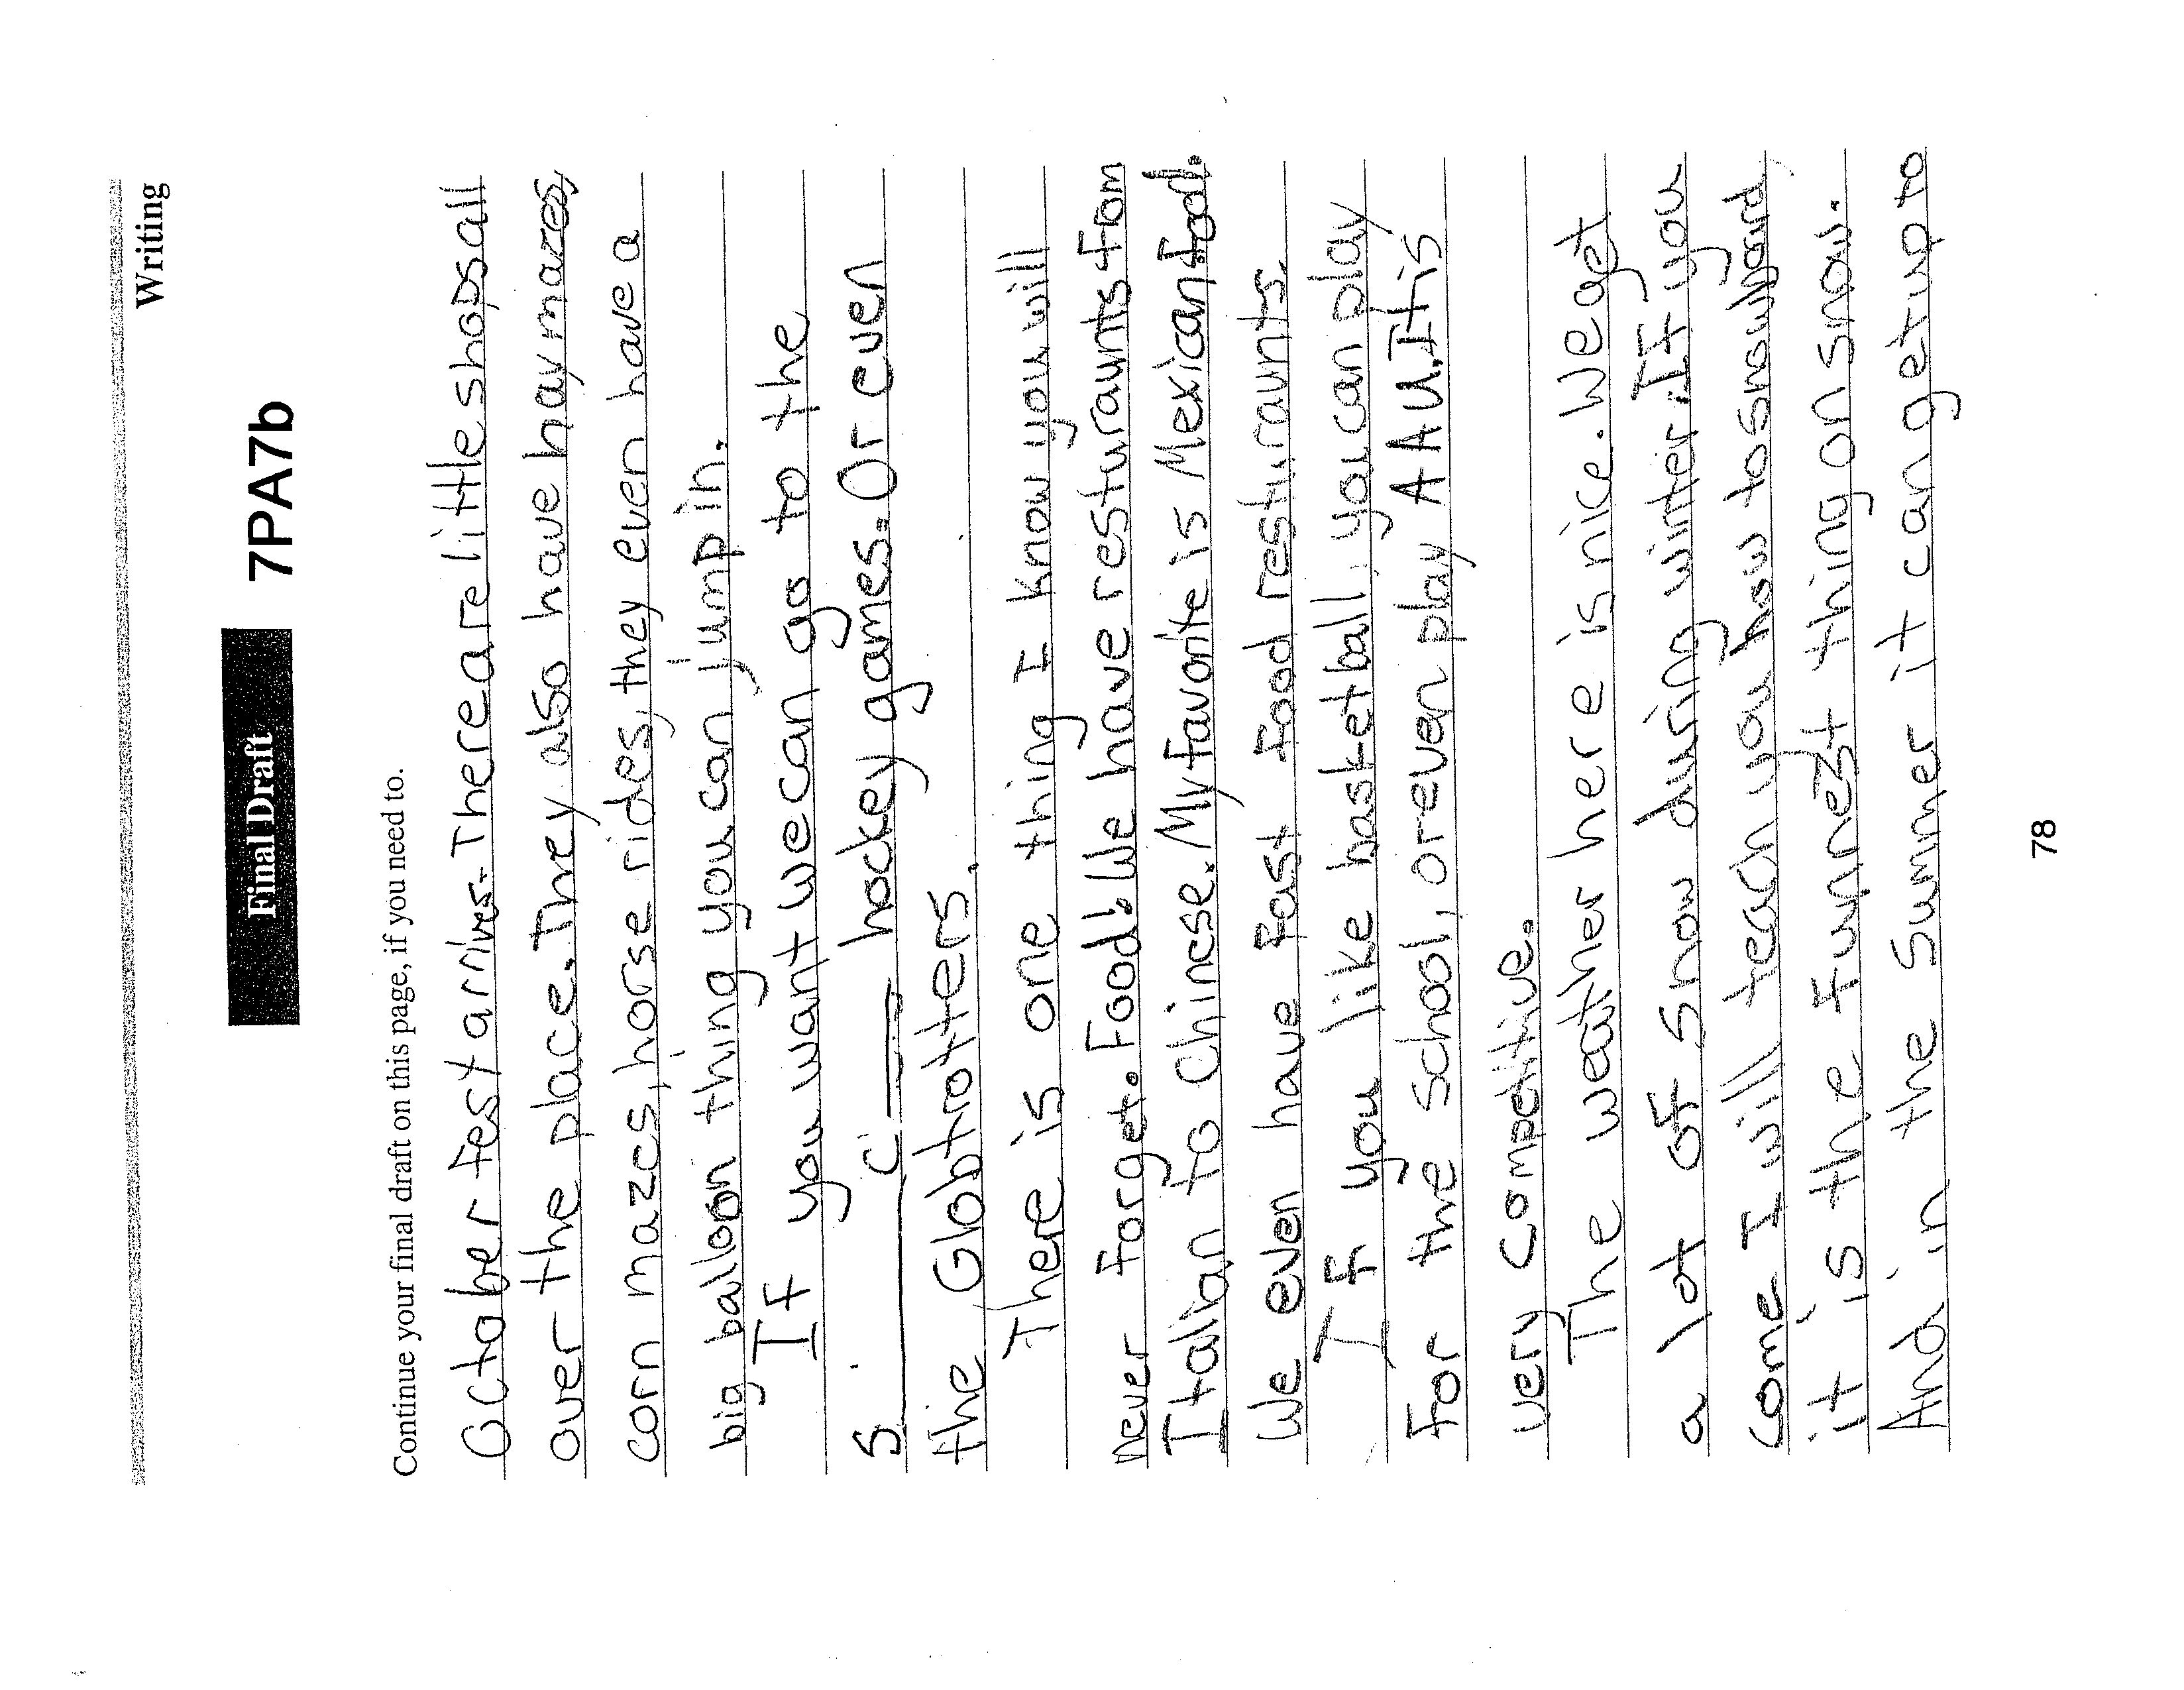 Writing
Final Draft 7PA7b
Continue your final draft on this page, if you need to.
October fest arrives. There are little shops all
over the place. They also have hay mazes,
corn mazes, horse rides, they even have a
big balloon thing you can jump in.
If you want we can go to the
S C hockey games. Or even
the Globtrotters.
There is one thing I know you will
never forget. Food! We have resturaunts from
Italian to Chinese. My favorite is Mexican food.
We even have fast food resturaunts.
If you like basketball, you can play
for the school, or even play AAU. It is
very competitive.
The weather here is nice. We get
a lot of snow during winter. If you
come I will teach you how to snowboard,
it is the funnest thing on snow.
And in the Summer it can get up to
78